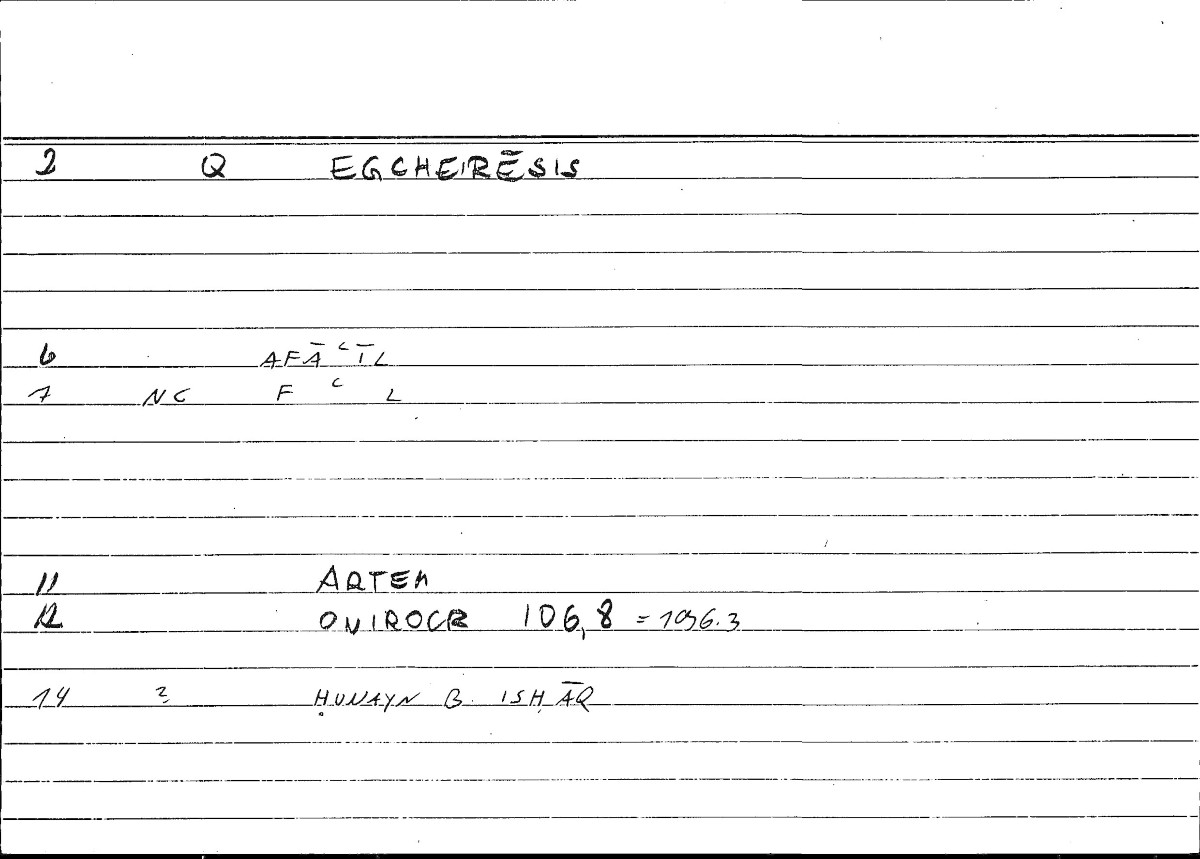 2 Q EGCHEIRĒSIS
6 AFĀʿĪL
7 NC F ʿ L
11 ARTEM
12 ONIROCR 106,8 = 196.3
14 2 ḤUNAYN B. ISḤĀQ